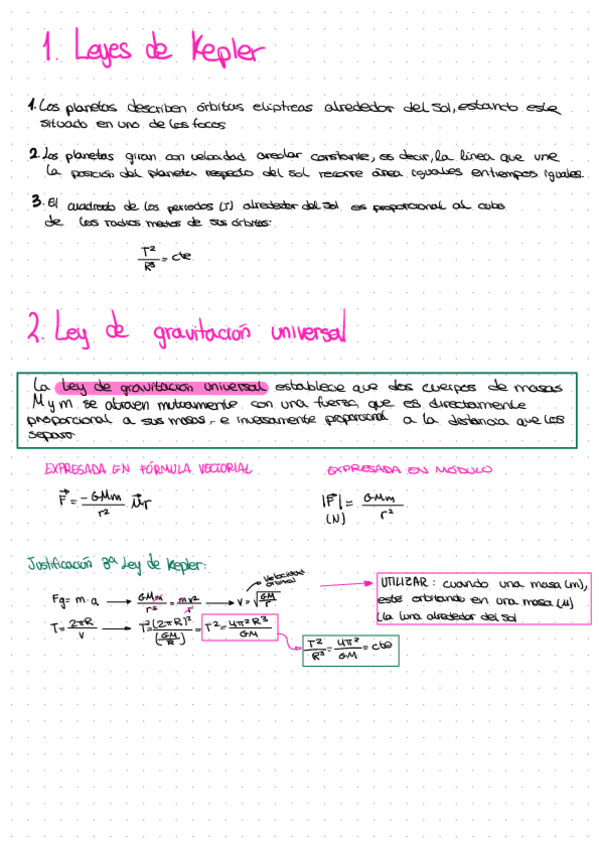 1. Leyes de Kepler
1. Los planetas describen órbitas elípticas alrededor del sol, estando este
situado en uno de los focos
2. Los planetas giran con velocidad areolar constante, es decir, la línea que une
la posición del planeta respecto del sol recorre área iguales en tiempos iguales.
3. El cuadrado de los periodos (T) alrededor del sol es proporcional al cubo
de los radios medios de sus órbitas:
T²/R³ = cte
2. Ley de gravitación universal
La Ley de gravitación universal establece que dos cuerpos de masas
M y m se atraen mutuamente con una fuerza que es directamente
proporcional a sus masas, e inversamente proporcional a la distancia que los
separa
EXPRESADA EN FÓRMULA VECTORIAL
EXPRESADA EN MÓDULO
F⃗ = -GMm/r² u⃗r
|F⃗| = GMm/r²
(N)
Justificación 3ª Ley de Kepler:
velocidad
orbital
Fg = m·a → GMm/r² = mv²/r → v = √(GM/r)
UTILIZAR: cuando una masa (m),
esté orbitando en una masa (M)
(la luna alrededor del sol
T = 2πR/v → T² = (2πR)²/(GM/R) → T² = 4π²R³/GM
T²/R³ = 4π²/GM = cte